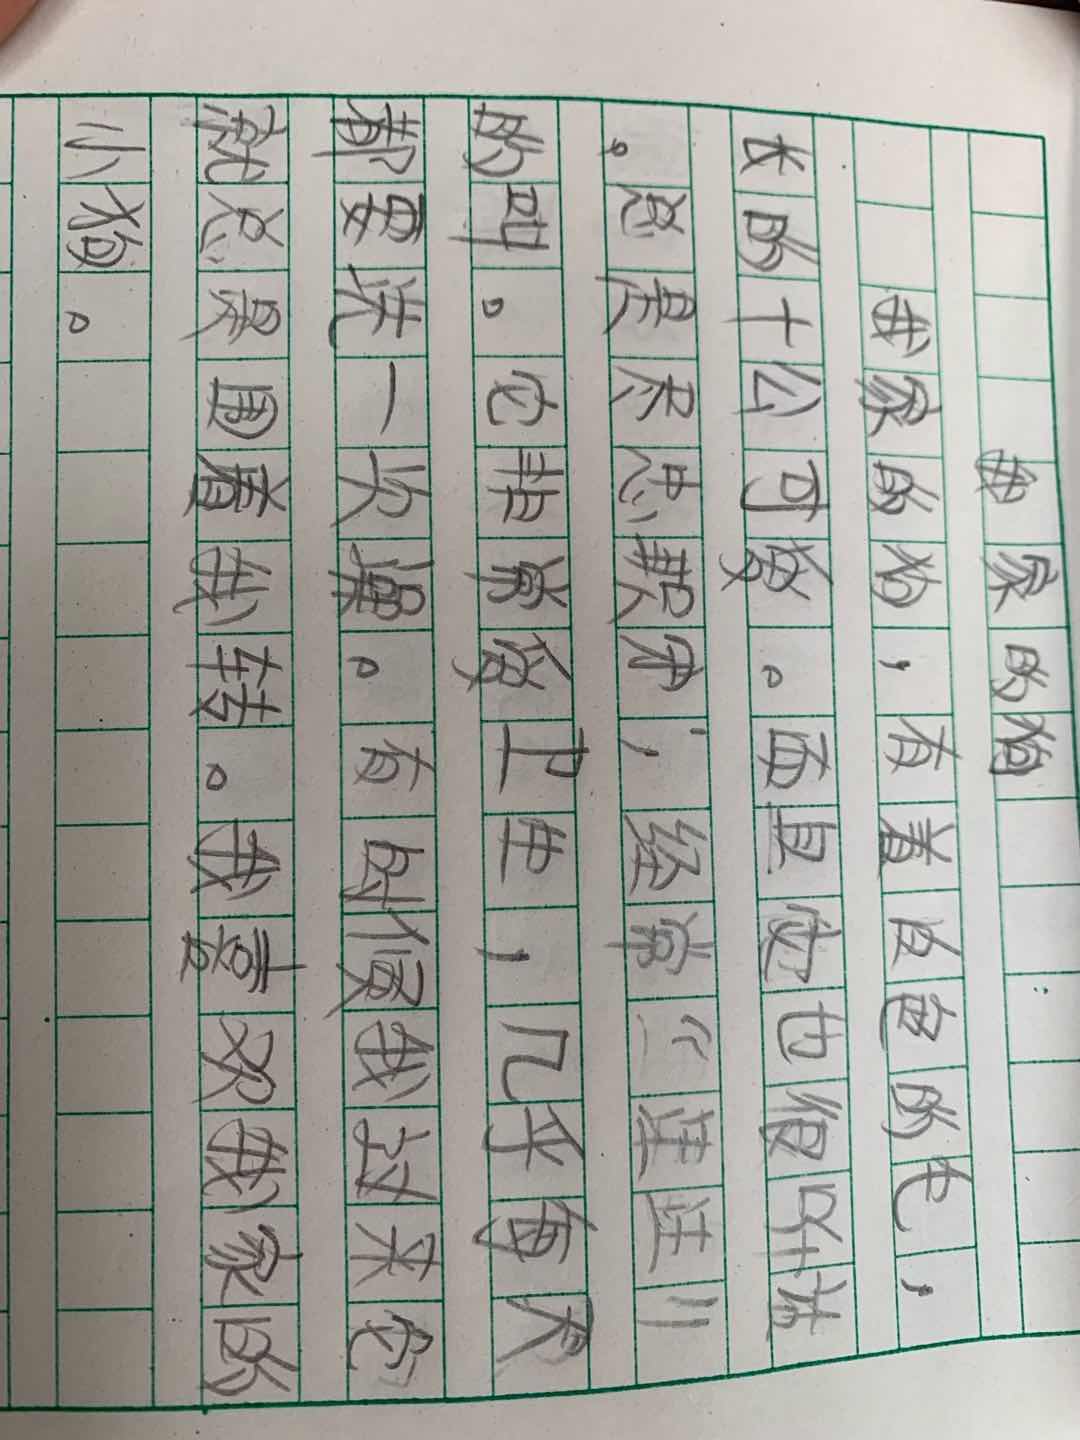 我家的狗
我家的狗，有着白色的毛，
长的十分可爱。而且他也很听话
。总是不忘帮，经常“汪汪”
的叫。它非常爱卫生，几乎每天
都要洗一次澡。有时候我过来它
就总是围着我转。我喜欢我家的
小狗。